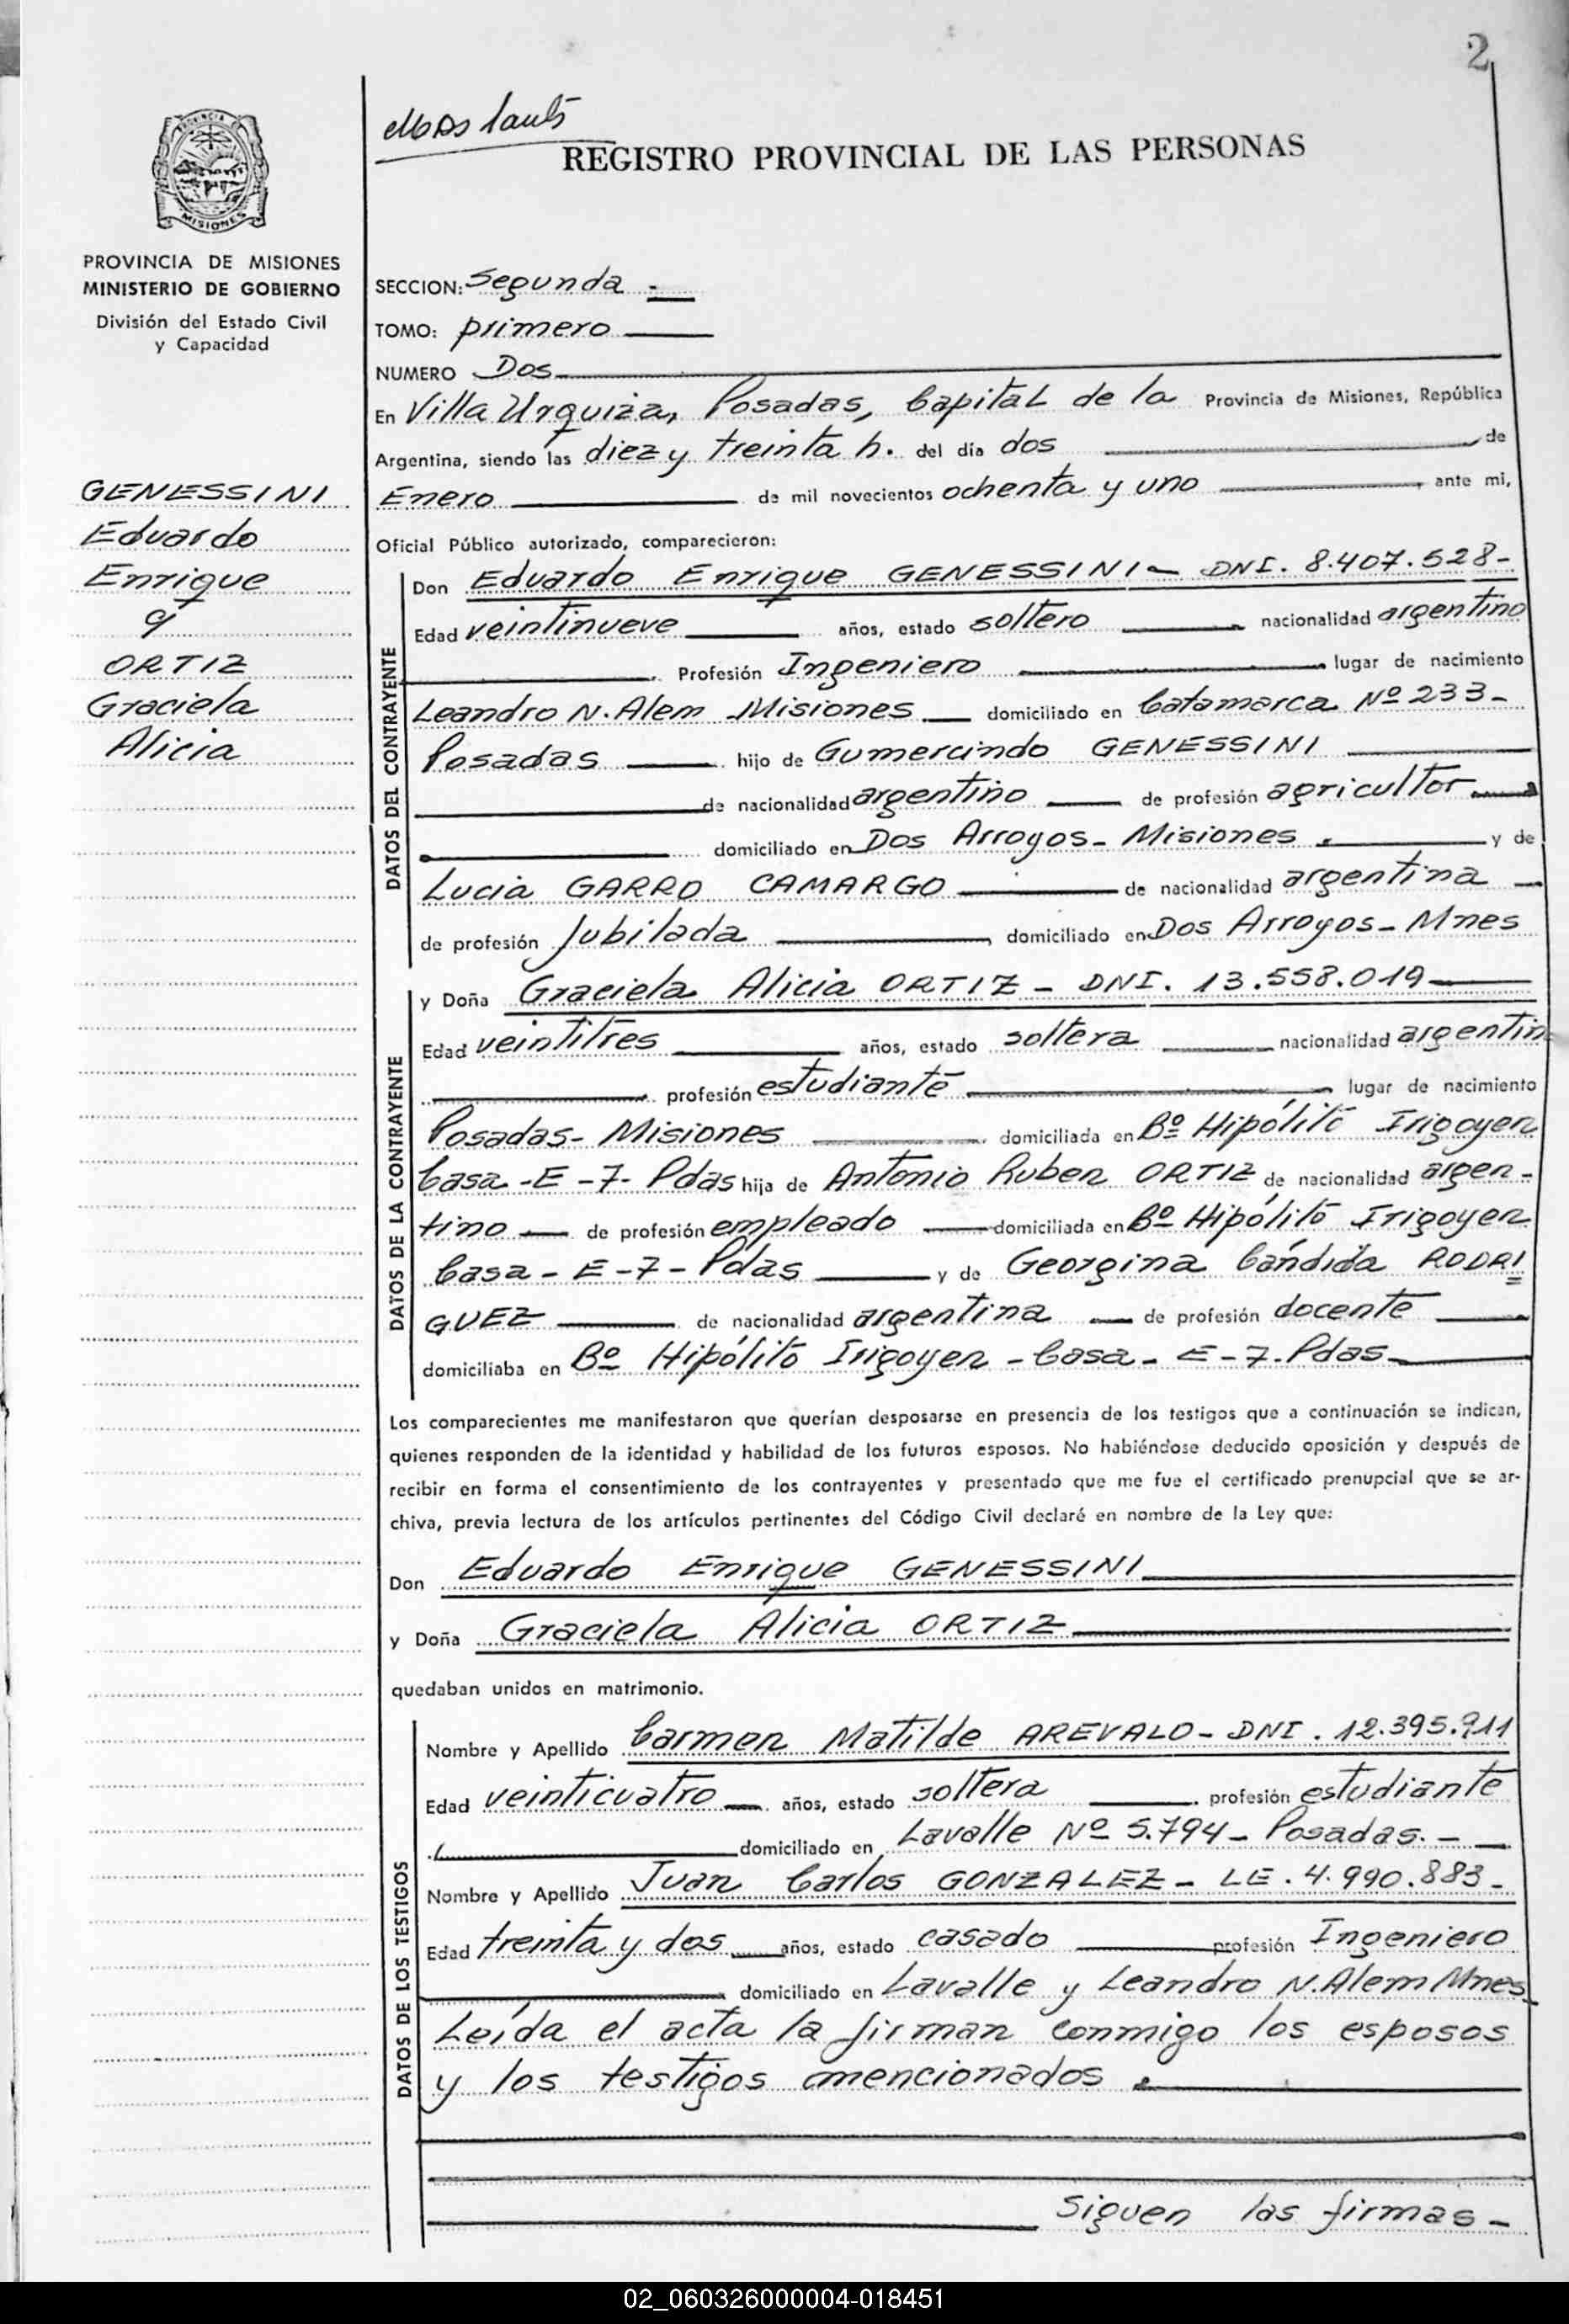 2
REGISTRO PROVINCIAL DE LAS PERSONAS
PROVINCIA
MISIONES
PROVINCIA DE MISIONES
MINISTERIO DE GOBIERNO
División del Estado Civil
y Capacidad
GENESSINI
Eduardo
Enrique
y
ORTIZ
Graciela
Alicia
SECCION: Segunda -
TOMO: primero
NUMERO Dos
En Villa Urquiza, Posadas, Capital de la Provincia de Misiones, República
Argentina, siendo las diez y treinta h. del día dos de
Enero de mil novecientos ochenta y uno ante mi,
Oficial Público autorizado, comparecieron:
DATOS DEL CONTRAYENTE
Don Eduardo Enrique GENESSINI - DNI. 8.407.528-
Edad veintinueve años, estado soltero nacionalidad argentino
Profesión Ingeniero lugar de nacimiento
Leandro N. Alem Misiones domiciliado en Catamarca Nº 233-
Posadas hijo de Gumercindo GENESSINI
de nacionalidad argentino de profesión agricultor
domiciliado en Dos Arroyos - Misiones . y de
Lucia GARRO CAMARGO de nacionalidad argentina
de profesión Jubilada domiciliado en Dos Arroyos - Mnes
DATOS DE LA CONTRAYENTE
y Doña Graciela Alicia ORTIZ - DNI. 13.558.019
Edad veintitres años, estado soltera nacionalidad argentin
profesión estudiante lugar de nacimiento
Posadas - Misiones domiciliada en Bº Hipólito Irigoyen
Casa - E - 7 - Pdas hija de Antonio Ruben ORTIZ de nacionalidad argen-
tino de profesión empleado domiciliada en Bº Hipólito Irigoyen
Casa - E - 7 - Pdas y de Georgina Cándida RODRI
GUEZ de nacionalidad argentina de profesión docente
domiciliaba en Bº Hipólito Irigoyen - Casa - E - 7. Pdas
Los comparecientes me manifestaron que querían desposarse en presencia de los testigos que a continuación se indican,
quienes responden de la identidad y habilidad de los futuros esposos. No habiéndose deducido oposición y después de
recibir en forma el consentimiento de los contrayentes y presentado que me fue el certificado prenupcial que se ar-
chiva, previa lectura de los artículos pertinentes del Código Civil declaré en nombre de la Ley que:
Don Eduardo Enrique GENESSINI
y Doña Graciela Alicia ORTIZ
quedaban unidos en matrimonio.
DATOS DE LOS TESTIGOS
Nombre y Apellido Carmen Matilde AREVALO - DNI . 12.395.911
Edad veinticuatro años, estado soltera profesión estudiante
domiciliado en Lavalle Nº 5.794 - Posadas. -
Nombre y Apellido Juan Carlos GONZALEZ - LE . 4.990.883 -
Edad treinta y dos años, estado casado profesión Ingeniero
domiciliado en Lavalle y Leandro N. Alem Mnes
Leída el acta la firman conmigo los esposos
y los testigos mencionados .
Siguen las firmas -
02_060326000004-018451